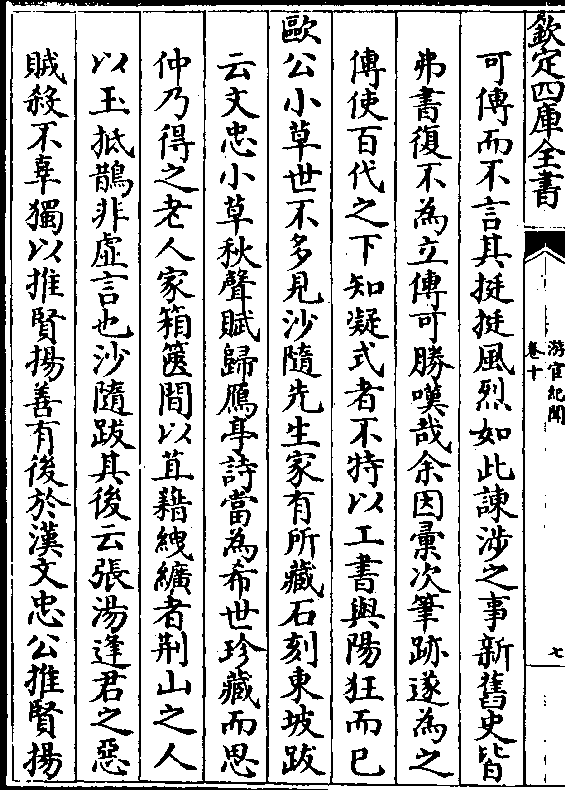 欽定四庫全書
游宦紀聞
卷十
七
可傳而不言其挺挺風烈如此諫涉之事新舊史皆
弗書復不為立傳可勝嘆哉余因彙次筆跡遂為之
傳使百代之下知凝式者不特以工書與陽狂而已
歐公小草世不多見沙隨先生家有所藏石刻東坡跋
云文忠小草秋聲賦歸鴈亭詩當為希世珍藏而思
仲乃得之老人家箱篋間以苴藉絏纊者荆山之人
以玉抵鵲非虛言也沙隨跋其後云張湯逢君之惡
賊殺不辜獨以推賢揚善有後於漢文忠公推賢揚